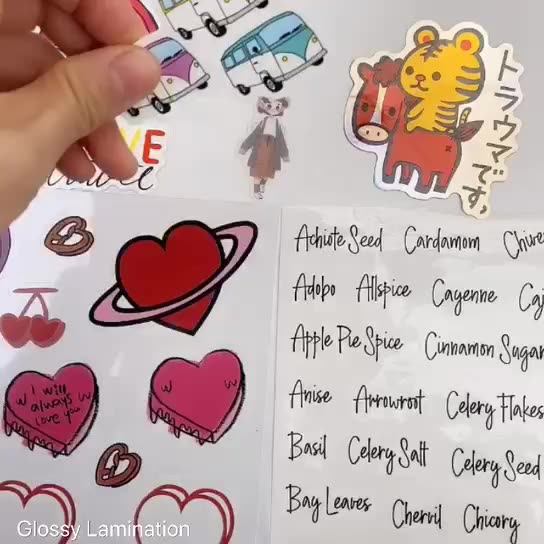 VE
トラウマです。
Achiote Seed Cardamom
Adobo Allspice Cayenne
Apple Pie Spice Cinnamon Sugar
Anise Arrowroot Celery Flakes
Basil Celery Salt Celery Seed
Bay Leaves Chervil Chicory
I will
always
love you
Glossy Lamination